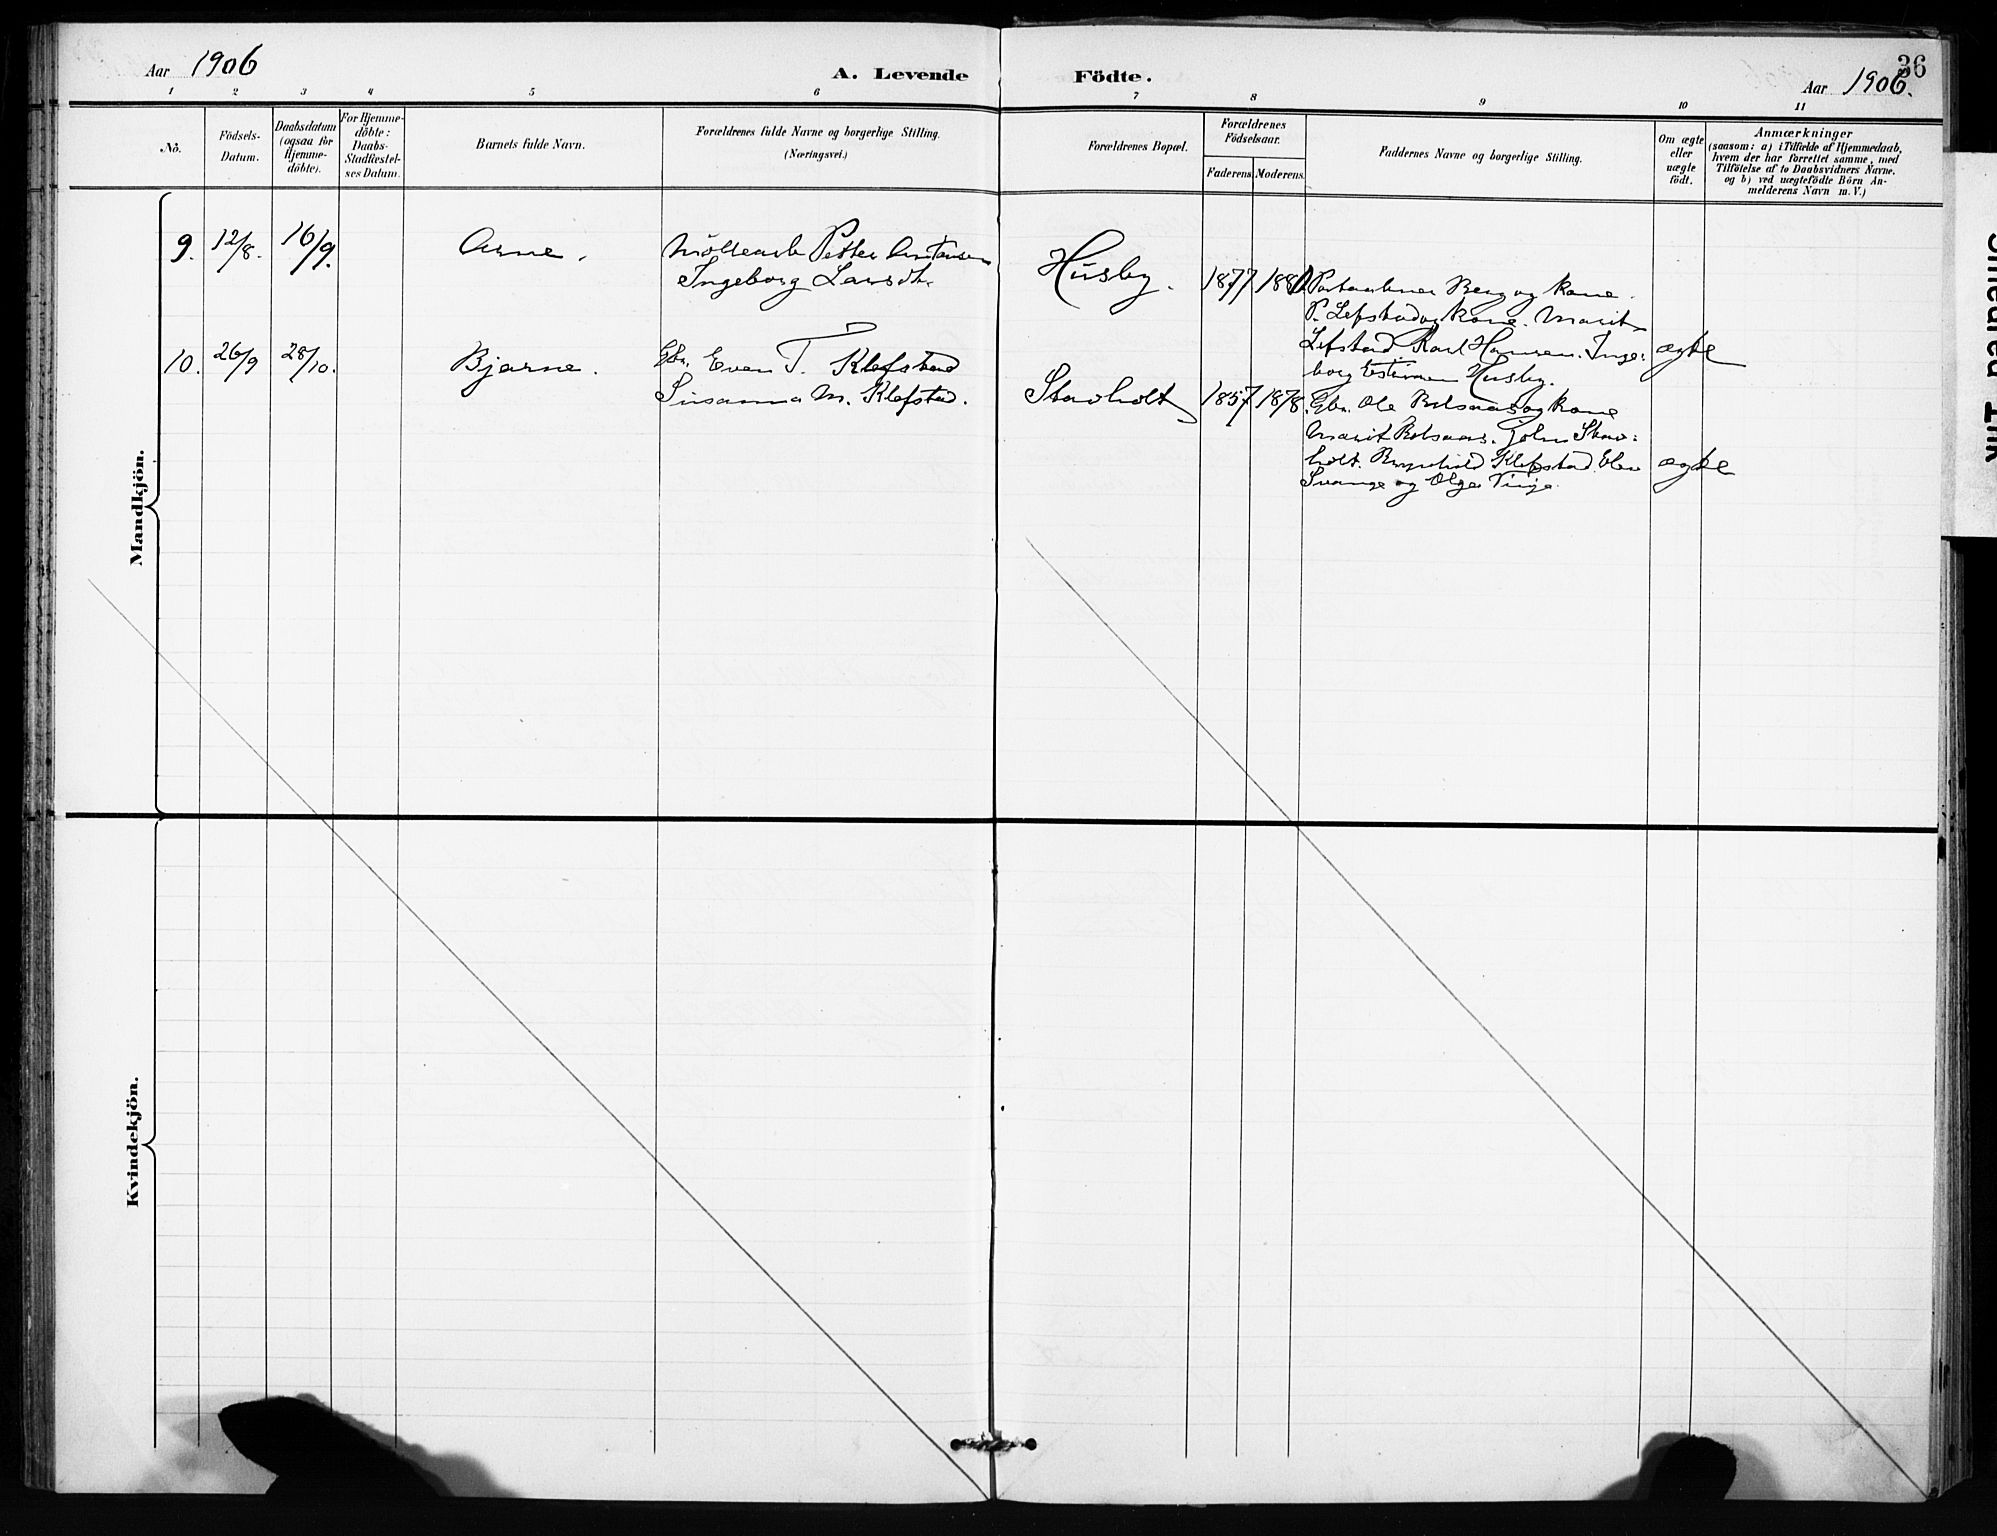 36
Aar 1906
A. Levende
Födte.
Aar 1906.
1 2 3 4 5 6 7 8 9 10 11
Nö.
Födsels-
Datum.
Daabsdatum
(ogsaa for
Hjemme-
döbte).
For Hjemme-
döbte:
Daabs-
Stadfæstel-
ses Datum.
Barnets fulde Navn.
Forældrenes fulde Navne og borgerlige Stilling.
(Næringsvei.)
Forældrenes Bopæl.
Forældrenes
Födselsaar.
Faderens
Moderens.
Faddernes Navne og borgerlige Stilling.
Om ægte
eller
uægte
födt.
Anmærkninger
(saasom: a) i Tilfælde af Hjemmedaab,
hvem der har forrettet samme, med
Tilföielse af to Daabsvidners Navne,
og b) ved uægtefödte Börn An-
melderens Navn m. V.)
Mandkjön.
9.
12/8.
16/9.
Arne.
Petter
Ingeborg Larsdtr.
Husby.
1877
Berg og Kone.
P. Lefstad og Kone. Marit
Lefstad Karl Hansen. Inge-
borg Husby.
ægte
10.
26/9
28/10.
Bjarne.
Gbr. Even T. Klefstad
Susanna M. Klefstad.
Stavholt
1857
1878.
Gbr. Ole og Kone
Marit John Stav-
holt. Klefstad
og Olga
ægte
Kvindekjön.